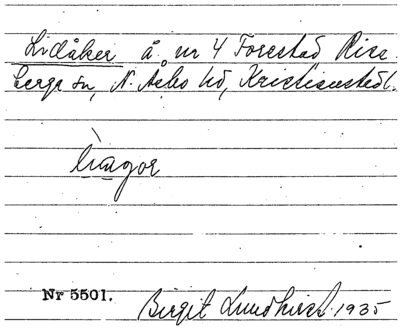 Lidåker å nr 4 Forestad Rise-
berga sn, N. Åsbo hd, Kristianstads l.
lìagor
Nr 5501.
Birgit Lundkvist. 1935